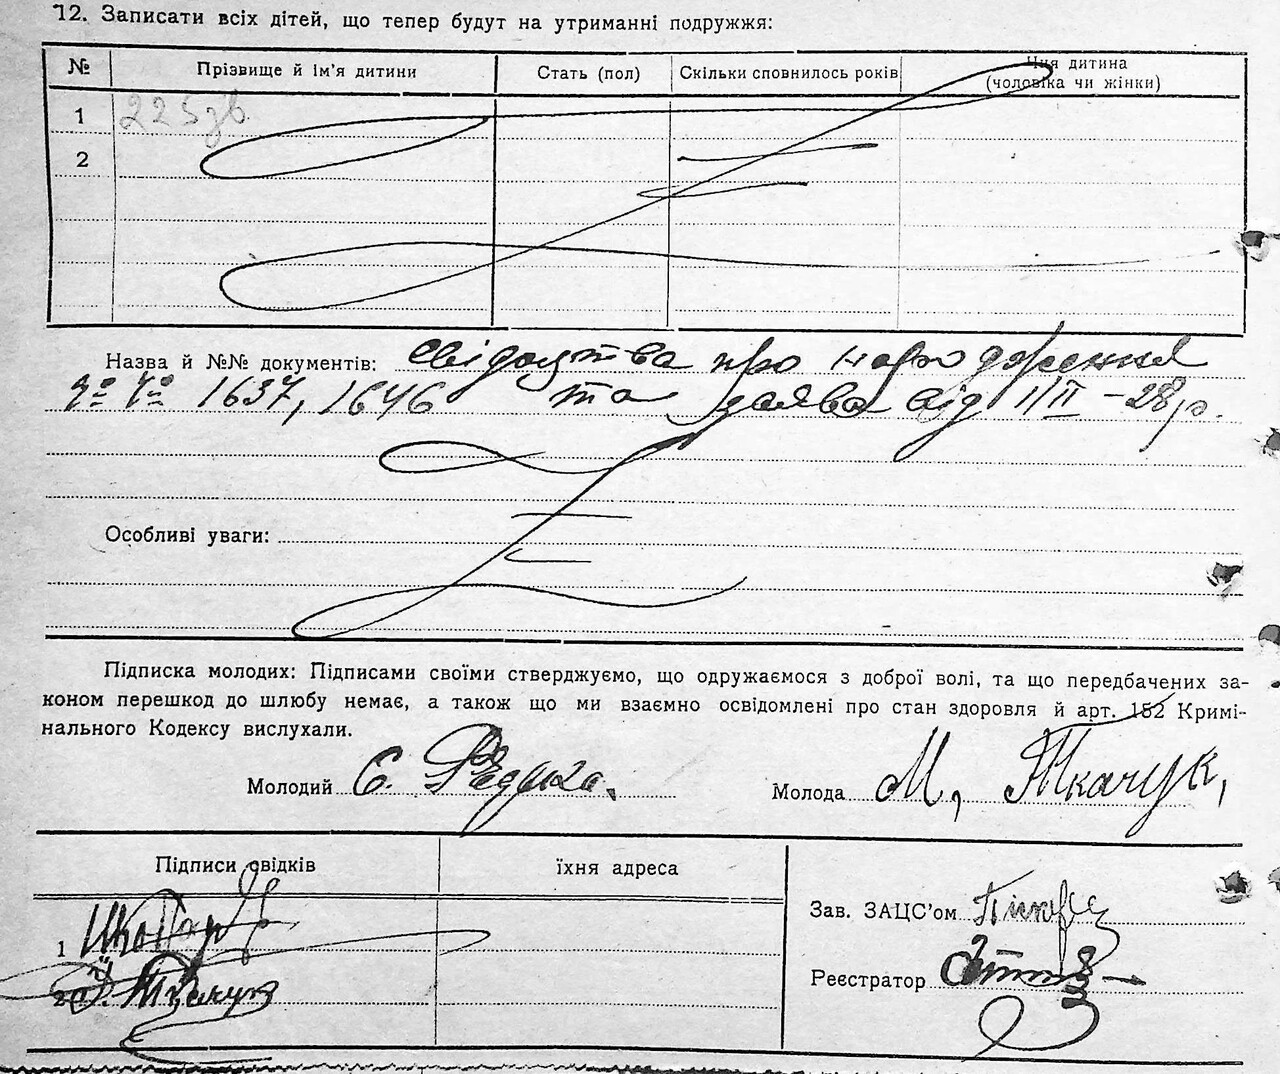 12. Записати всіх дітей, що тепер будут на утриманні подружжя:
№ Прізвище й ім'я дитини Стать (пол) Скільки сповнилось років Чия дитина
(чоловіка чи жінки)
1 225зв
2
Назва й №№ документів: свідоцтва про народження
№ № 1637, 1646 та заява від 1/II – 28 р.
Особливі уваги:
Підписка молодих: Підписами своїми стверджуємо, що одружаємося з доброї волі, та що передбачених за-
коном перешкод до шлюбу немає, а також що ми взаємно освідомлені про стан здоровля й арт. 152 Кримі-
нального Кодексу вислухали.
Молодий Є. Редька. Молода М. Ткачук,
Підписи свідків їхня адреса
Зав. ЗАЦС'ом
1
Реєстратор
2